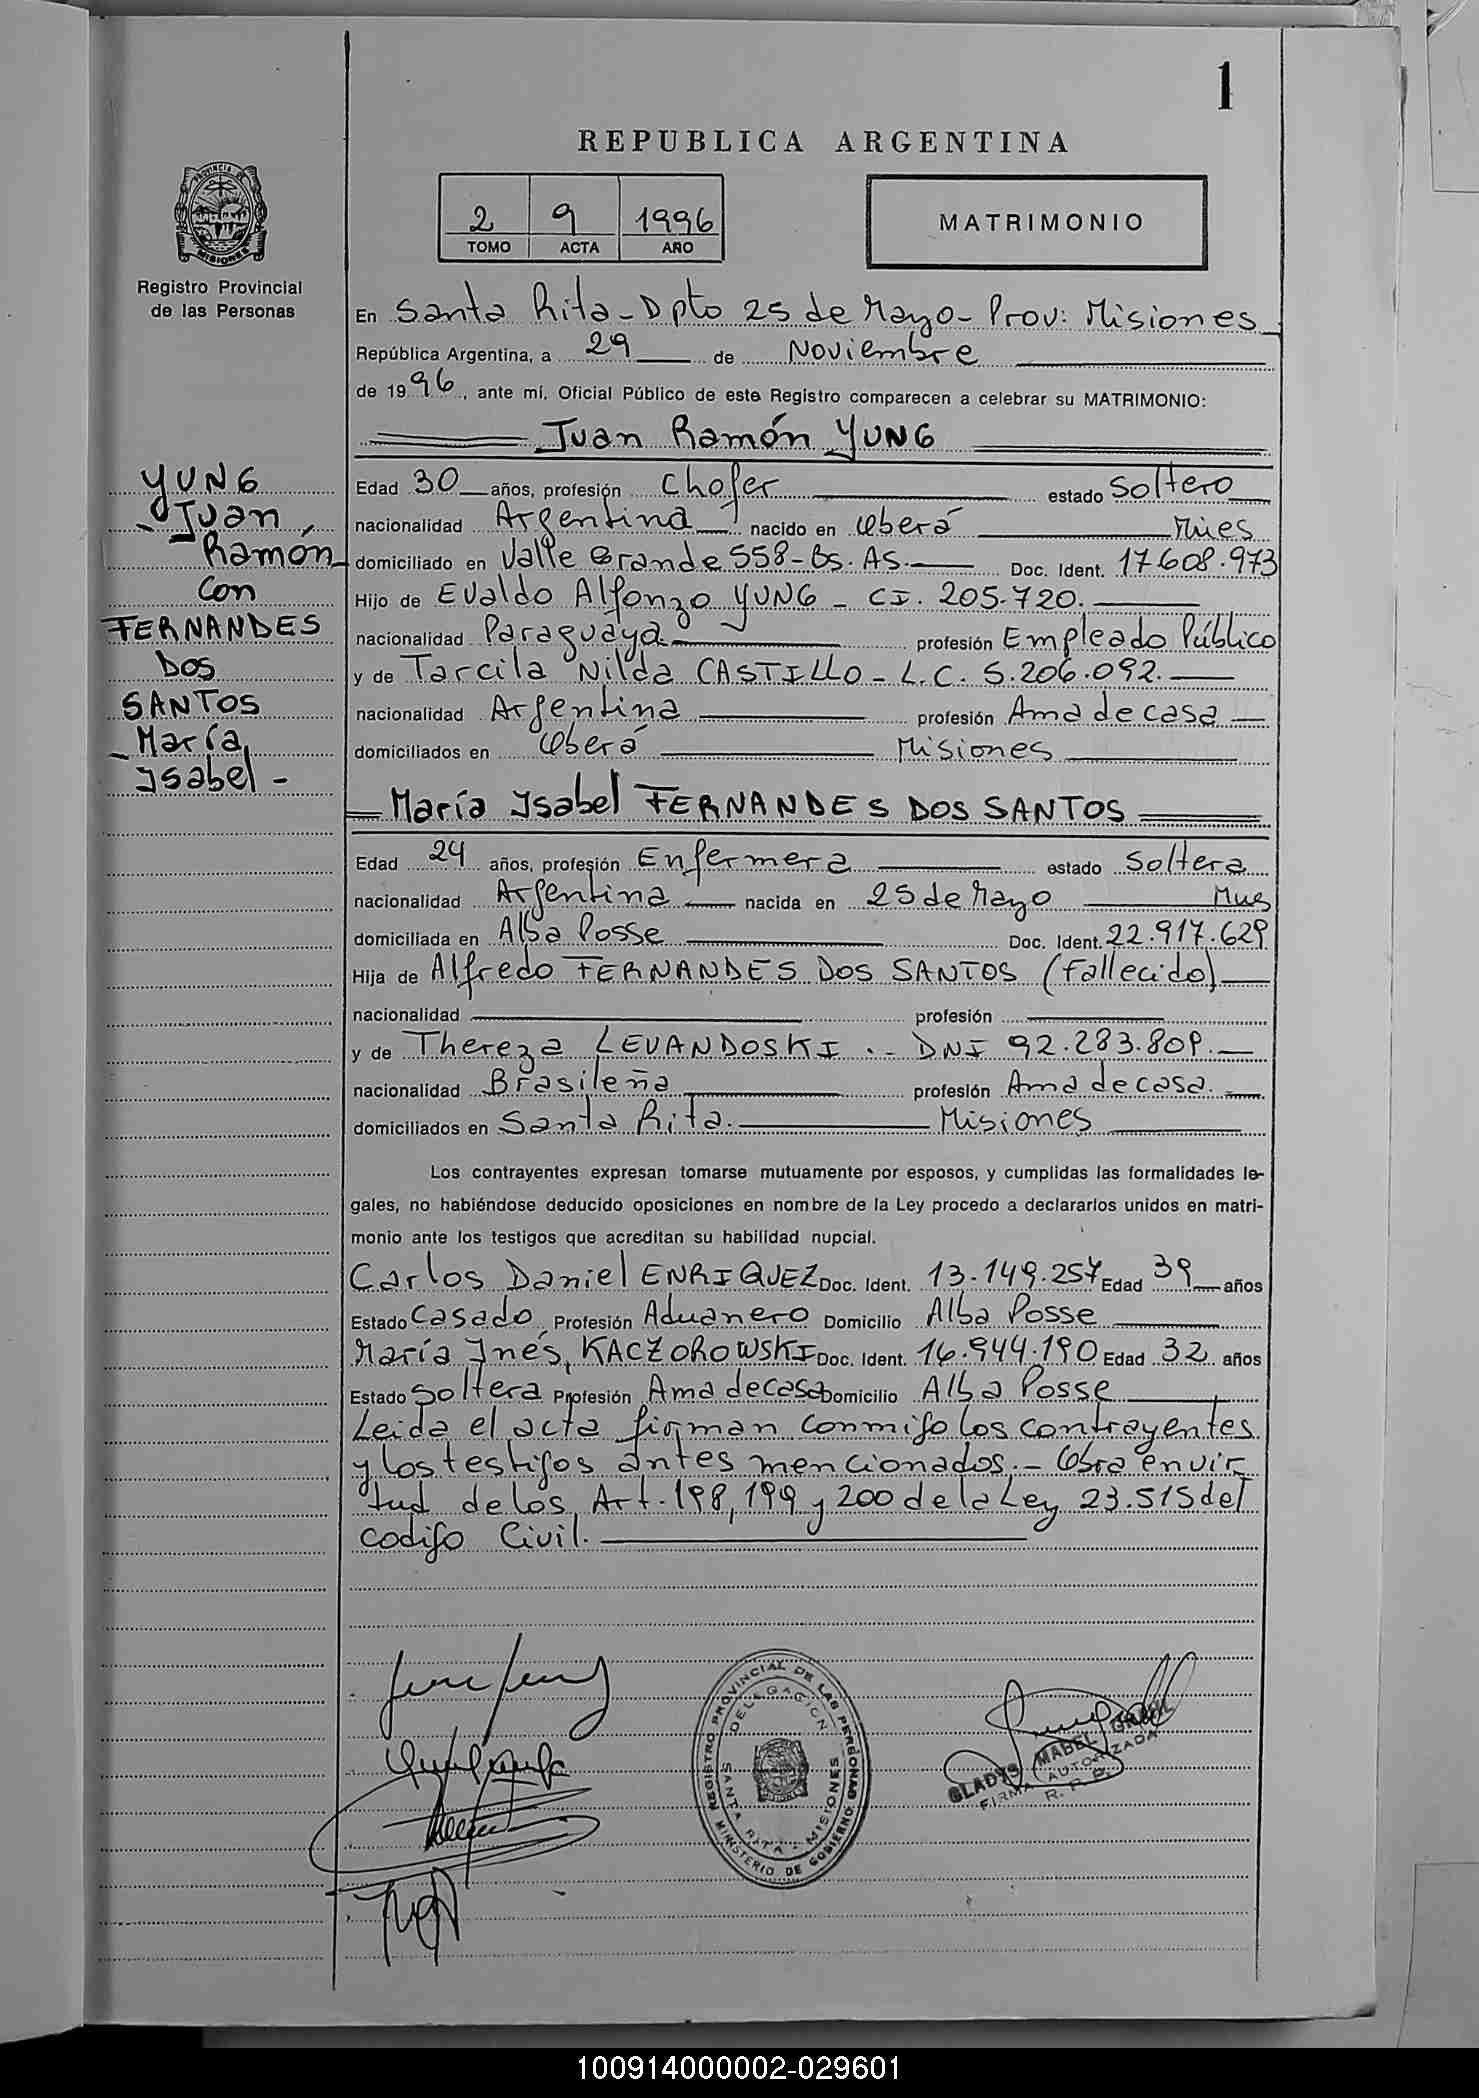 1
REPUBLICA ARGENTINA
2 9 1996
TOMO ACTA AÑO
MATRIMONIO
PROVINCIA DE
MISIONES
Registro Provincial
de las Personas
En Santa Rita - Dpto 25 de Mayo - Prov: Misiones
República Argentina, a 29 de Noviembre
de 1996, ante mí, Oficial Público de este Registro comparecen a celebrar su MATRIMONIO:
Juan Ramón YUNG
YUNG
Juan
Ramón
Con
FERNANDES
DOS
SANTOS
María
Isabel -
Edad 30 años, profesión Chofer estado Soltero
nacionalidad Argentina nacido en Oberá Mnes
domiciliado en Valle Grande 558 - Bs. As. Doc. Ident. 17.608.973
Hijo de Evaldo Alfonzo YUNG - CI. 205.720.
nacionalidad Paraguaya profesión Empleado Público
y de Tarcila Nilda CASTILLO - L.C. 5.206.092.
nacionalidad Argentina profesión Ama de casa
domiciliados en Oberá Misiones
María Isabel FERNANDES DOS SANTOS
Edad 24 años, profesión Enfermera estado Soltera
nacionalidad Argentina nacida en 25 de Mayo Mnes
domiciliada en Alba Posse Doc. Ident. 22.917.629
Hija de Alfredo FERNANDES DOS SANTOS (Fallecido)
nacionalidad profesión
y de Thereza LEVANDOSKI .- DNI 92.283.809.
nacionalidad Brasileña profesión Ama de casa.
domiciliados en Santa Rita. Misiones
Los contrayentes expresan tomarse mutuamente por esposos, y cumplidas las formalidades le-
gales, no habiéndose deducido oposiciones en nombre de la Ley procedo a declararlos unidos en matri-
monio ante los testigos que acreditan su habilidad nupcial.
Carlos Daniel ENRIQUEZ Doc. Ident. 13.149.257 Edad 39 años
Estado Casado Profesión Aduanero Domicilio Alba Posse
María Inés KACZOROWSKI Doc. Ident. 16.944.190 Edad 32 años
Estado Soltera Profesión Ama de casa Domicilio Alba Posse
Leida el acta firman conmigo los contrayentes
y los testigos antes mencionados.- Obra en vir
tud de los Art. 198, 199 y 200 de la Ley 23.515 del
codigo Civil.
REGISTRO PROVINCIAL DE LAS PERSONAS
DELEGACION
SANTA RITA - MISIONES
MINISTERIO DE GOBIERNO
GLADYS MABEL GRAHL
FIRMA AUTORIZADA
R. P. P.
100914000002-029601